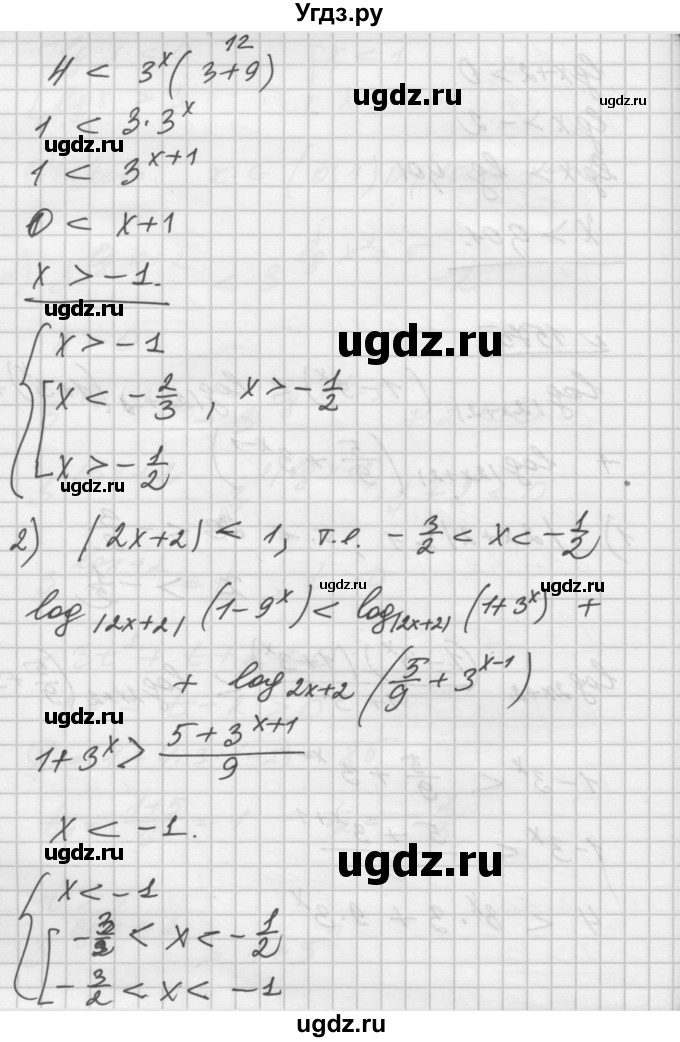 Угдз.ру
4 < 3^x (3+9)
12
ugdz.ru
ugdz.ru
1 < 3·3^x
ugdz.ru
1 < 3^{x+1}
0 < x+1
x > -1.
ugdz.ru
ugdz.ru
{ x > -1
[ x < -2/3 , x > -1/2
x > -1/2
ugdz.ru
2) |2x+2| < 1, т.е. -3/2 < x < -1/2
ugdz.ru
ugdz.ru
log_{|2x+2|} (1-9^x) < log_{|2x+2|} (1+3^x) +
+ log_{2x+2} (5/9 + 3^{x-1})
ugdz.ru
1+3^x > (5+3^{x+1})/9
x < -1.
ugdz.ru
ugdz.ru
{ x < -1
[ -3/2 < x < -1/2
-3/2 < x < -1
ugdz.ru